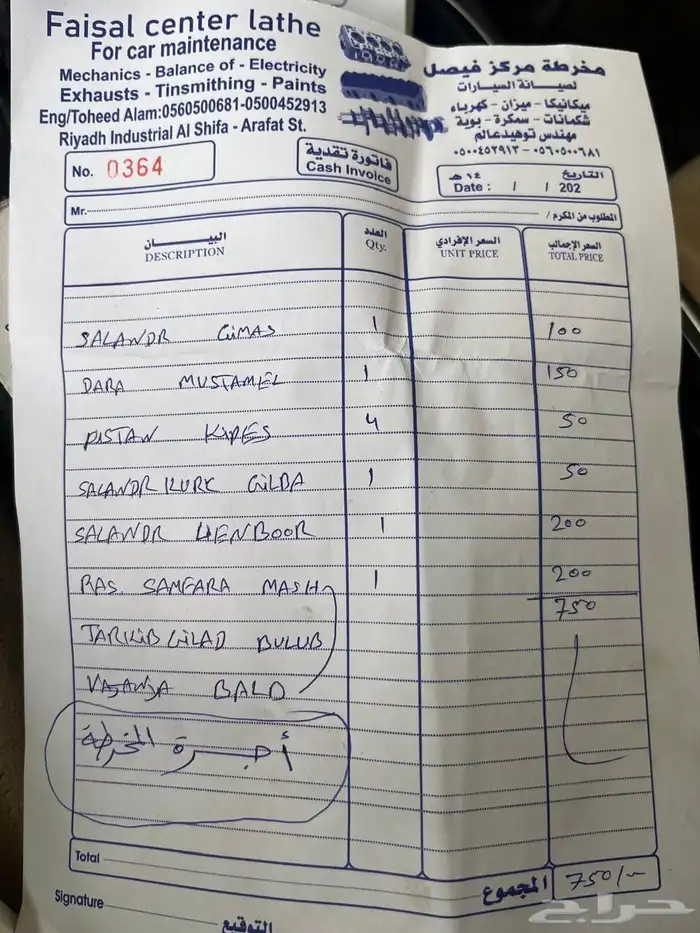 Faisal center lathe
For car maintenance
Mechanics - Balance of - Electricity
Exhausts - Tinsmithing - Paints
Eng/Toheed Alam:0560500681-0500452913
Riyadh Industrial Al Shifa - Arafat St.
مخرطة مركز فيصل
لصيانة السيارات
ميكانيكا - ميزان - كهرباء
شكمانات - سمكرة - بوية
مهندس توهيد عالم
٠٥٦٠٥٠٠٦٨١ - ٠٥٠٠٤٥٢٩١٣
No. 0364
فاتورة نقدية
Cash Invoice
التاريخ / / ١٤ هـ
Date : / / 202
Mr. المطلوب من المكرم /
البيـــــان العدد السعر الإفرادي السعر الإجمالي
DESCRIPTION Qty. UNIT PRICE TOTAL PRICE
SALANDR GIMAS 1 100
DARA MUSTAMEL 1 150
PISTAN KIPES 4 50
SALANDR KURK GILBA 1 50
SALANDR HENBOOR 1 200
RAS SAMFARA MASH 1 200
750
TARKIB GILAD BULUB
VAJAWJA BALD
أجرة المخرطة
Total المجموع 750/-
Signature التوقيع
حراج